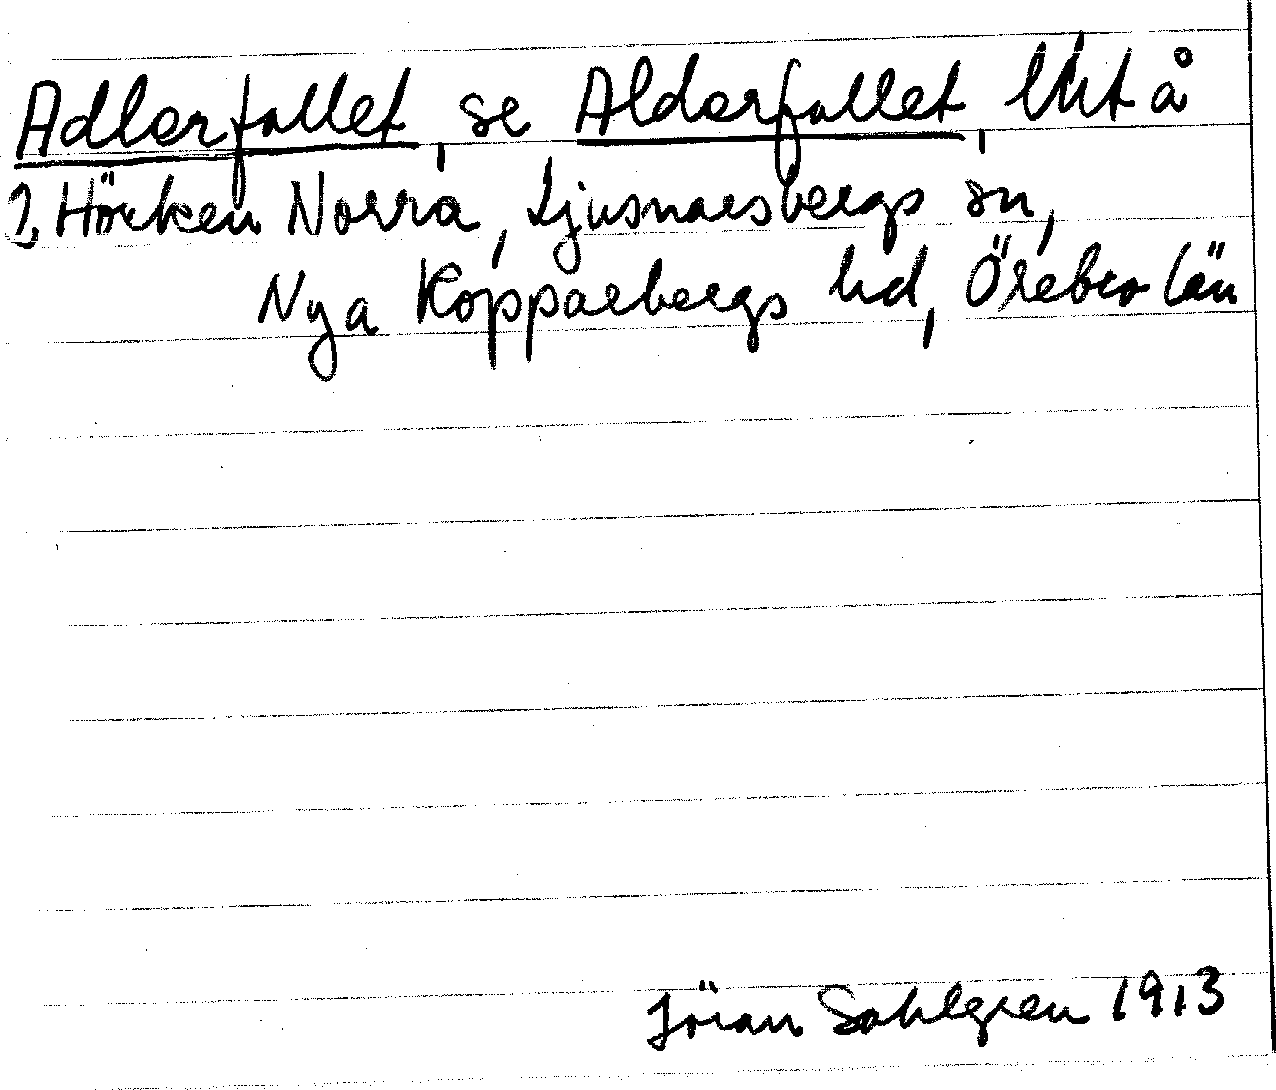 Adlerfallet, se Alderfallet, lht å
?, Hörken Norra, Ljusnarsbergs sn,
Nya Kopparbergs hd, Örebro län
Jöran Sahlgren 1913